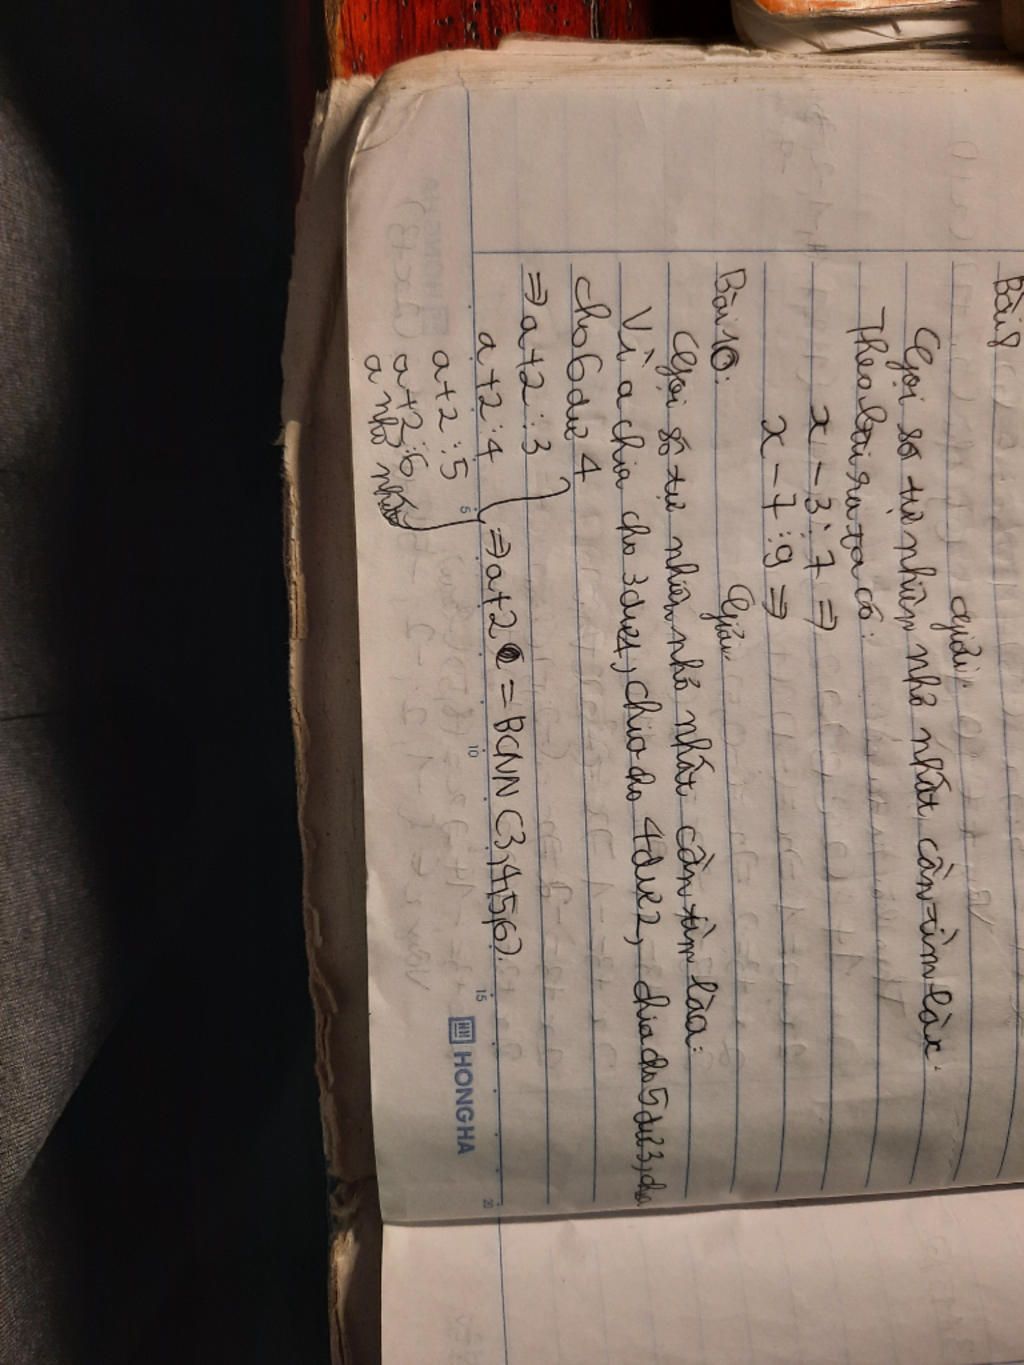 Bài 9
Giải
Gọi số tự nhiên nhỏ nhất cần tìm là x.
Theo bài ra ta có:
x - 3 ⋮ 7 ⇒
x - 7 ⋮ 9 ⇒
Bài 10:
Giải
Gọi số tự nhiên nhỏ nhất cần tìm là a:
Vì a chia cho 3 dư 1, chia cho 4 dư 2, chia cho 5 dư 3, chia
cho 6 dư 4
⇒ a + 2 ⋮ 3
a + 2 ⋮ 4 ⇒ a + 2 = BCNN (3,4,5,6).
a + 2 ⋮ 5
a + 2 ⋮ 6
a nhỏ nhất
5 10 15 20
HONG HA